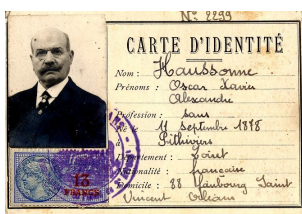 N° 2299
CARTE D'IDENTITÉ
Nom : Haussonne
Prénoms : Oscar Xavier
Alexandre
Profession : sans
Né le 11 Septembre 1878
à Pithiviers
Département : Loiret
Nationalité : française
Domicile : 88 Faubourg Saint
Vincent Orléans
13
FRANCS